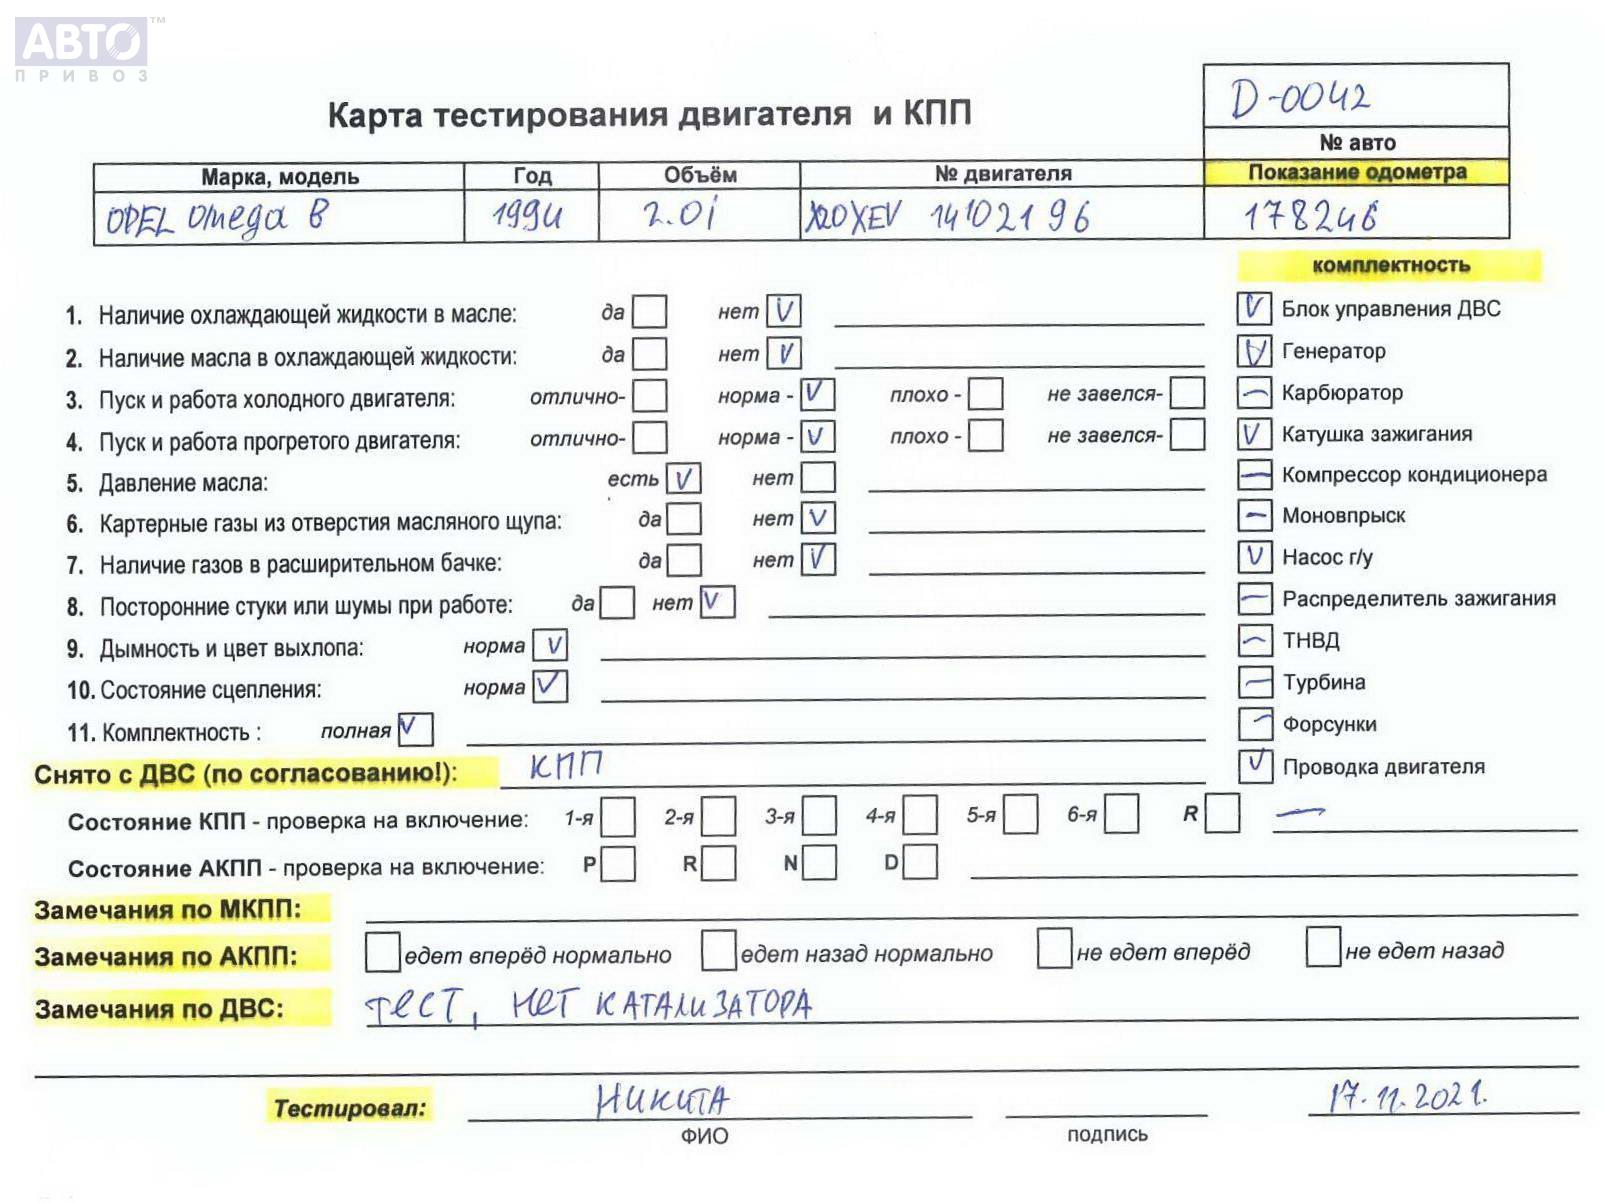 АВТО™
ПРИВОЗ
D-0042
Карта тестирования двигателя и КПП
№ авто
Марка, модель Год Объём № двигателя Показание одометра
OPEL Omega B 1994 2.0i X20XEV 14102196 178246
комплектность
1. Наличие охлаждающей жидкости в масле: да нет V V Блок управления ДВС
2. Наличие масла в охлаждающей жидкости: да нет V V Генератор
3. Пуск и работа холодного двигателя: отлично- норма - V плохо - не завелся- – Карбюратор
4. Пуск и работа прогретого двигателя: отлично- норма - V плохо - не завелся- V Катушка зажигания
5. Давление масла: есть V нет – Компрессор кондиционера
6. Картерные газы из отверстия масляного щупа: да нет V – Моновпрыск
7. Наличие газов в расширительном бачке: да нет V V Насос г/у
8. Посторонние стуки или шумы при работе: да нет V – Распределитель зажигания
9. Дымность и цвет выхлопа: норма V – ТНВД
10. Состояние сцепления: норма V – Турбина
11. Комплектность : полная V – Форсунки
Снято с ДВС (по согласованию!): КПП V Проводка двигателя
Состояние КПП - проверка на включение: 1-я 2-я 3-я 4-я 5-я 6-я R –
Состояние АКПП - проверка на включение: P R N D
Замечания по МКПП:
Замечания по АКПП: едет вперёд нормально едет назад нормально не едет вперёд не едет назад
Замечания по ДВС: тест, нет катализатора
Тестировал: Никита 17.11.2021.
ФИО подпись